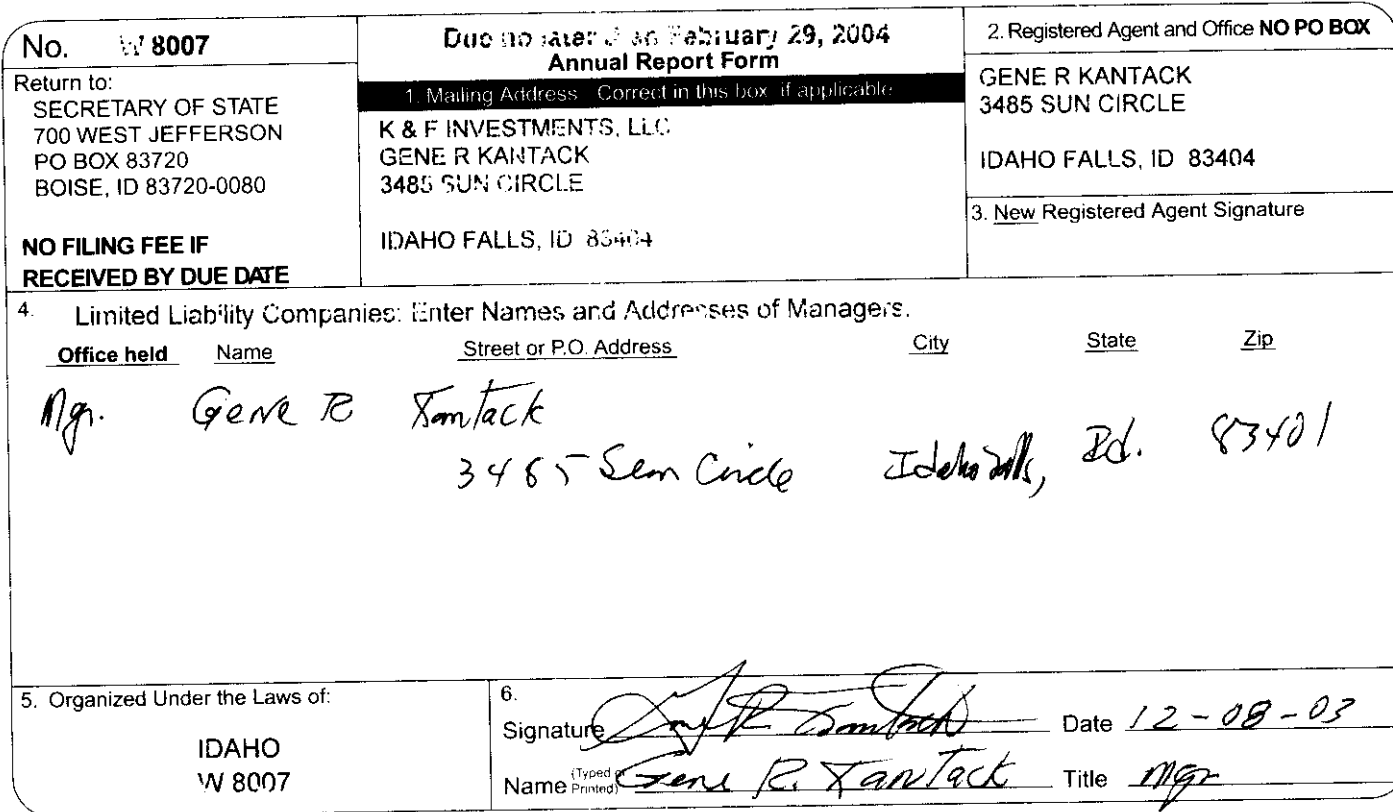 No. W 8007
Return to:
SECRETARY OF STATE
700 WEST JEFFERSON
PO BOX 83720
BOISE, ID 83720-0080
NO FILING FEE IF
RECEIVED BY DUE DATE
Due no later than February 29, 2004
Annual Report Form
1. Mailing Address Correct in this box if applicable
K & F INVESTMENTS, LLC
GENE R KANTACK
3485 SUN CIRCLE
IDAHO FALLS, ID 83404
2. Registered Agent and Office NO PO BOX
GENE R KANTACK
3485 SUN CIRCLE
IDAHO FALLS, ID 83404
3. New Registered Agent Signature
4. Limited Liability Companies: Enter Names and Addresses of Managers.
Office held Name Street or P.O. Address City State Zip
Mgr. Gene R Kantack
3485 Sun Circle Idaho Falls, Id. 83401
5. Organized Under the Laws of:
IDAHO
W 8007
6.
Signature Gene R Kantack Date 12-08-03
Name (Typed or Printed) Gene R. Kantack Title Mgr